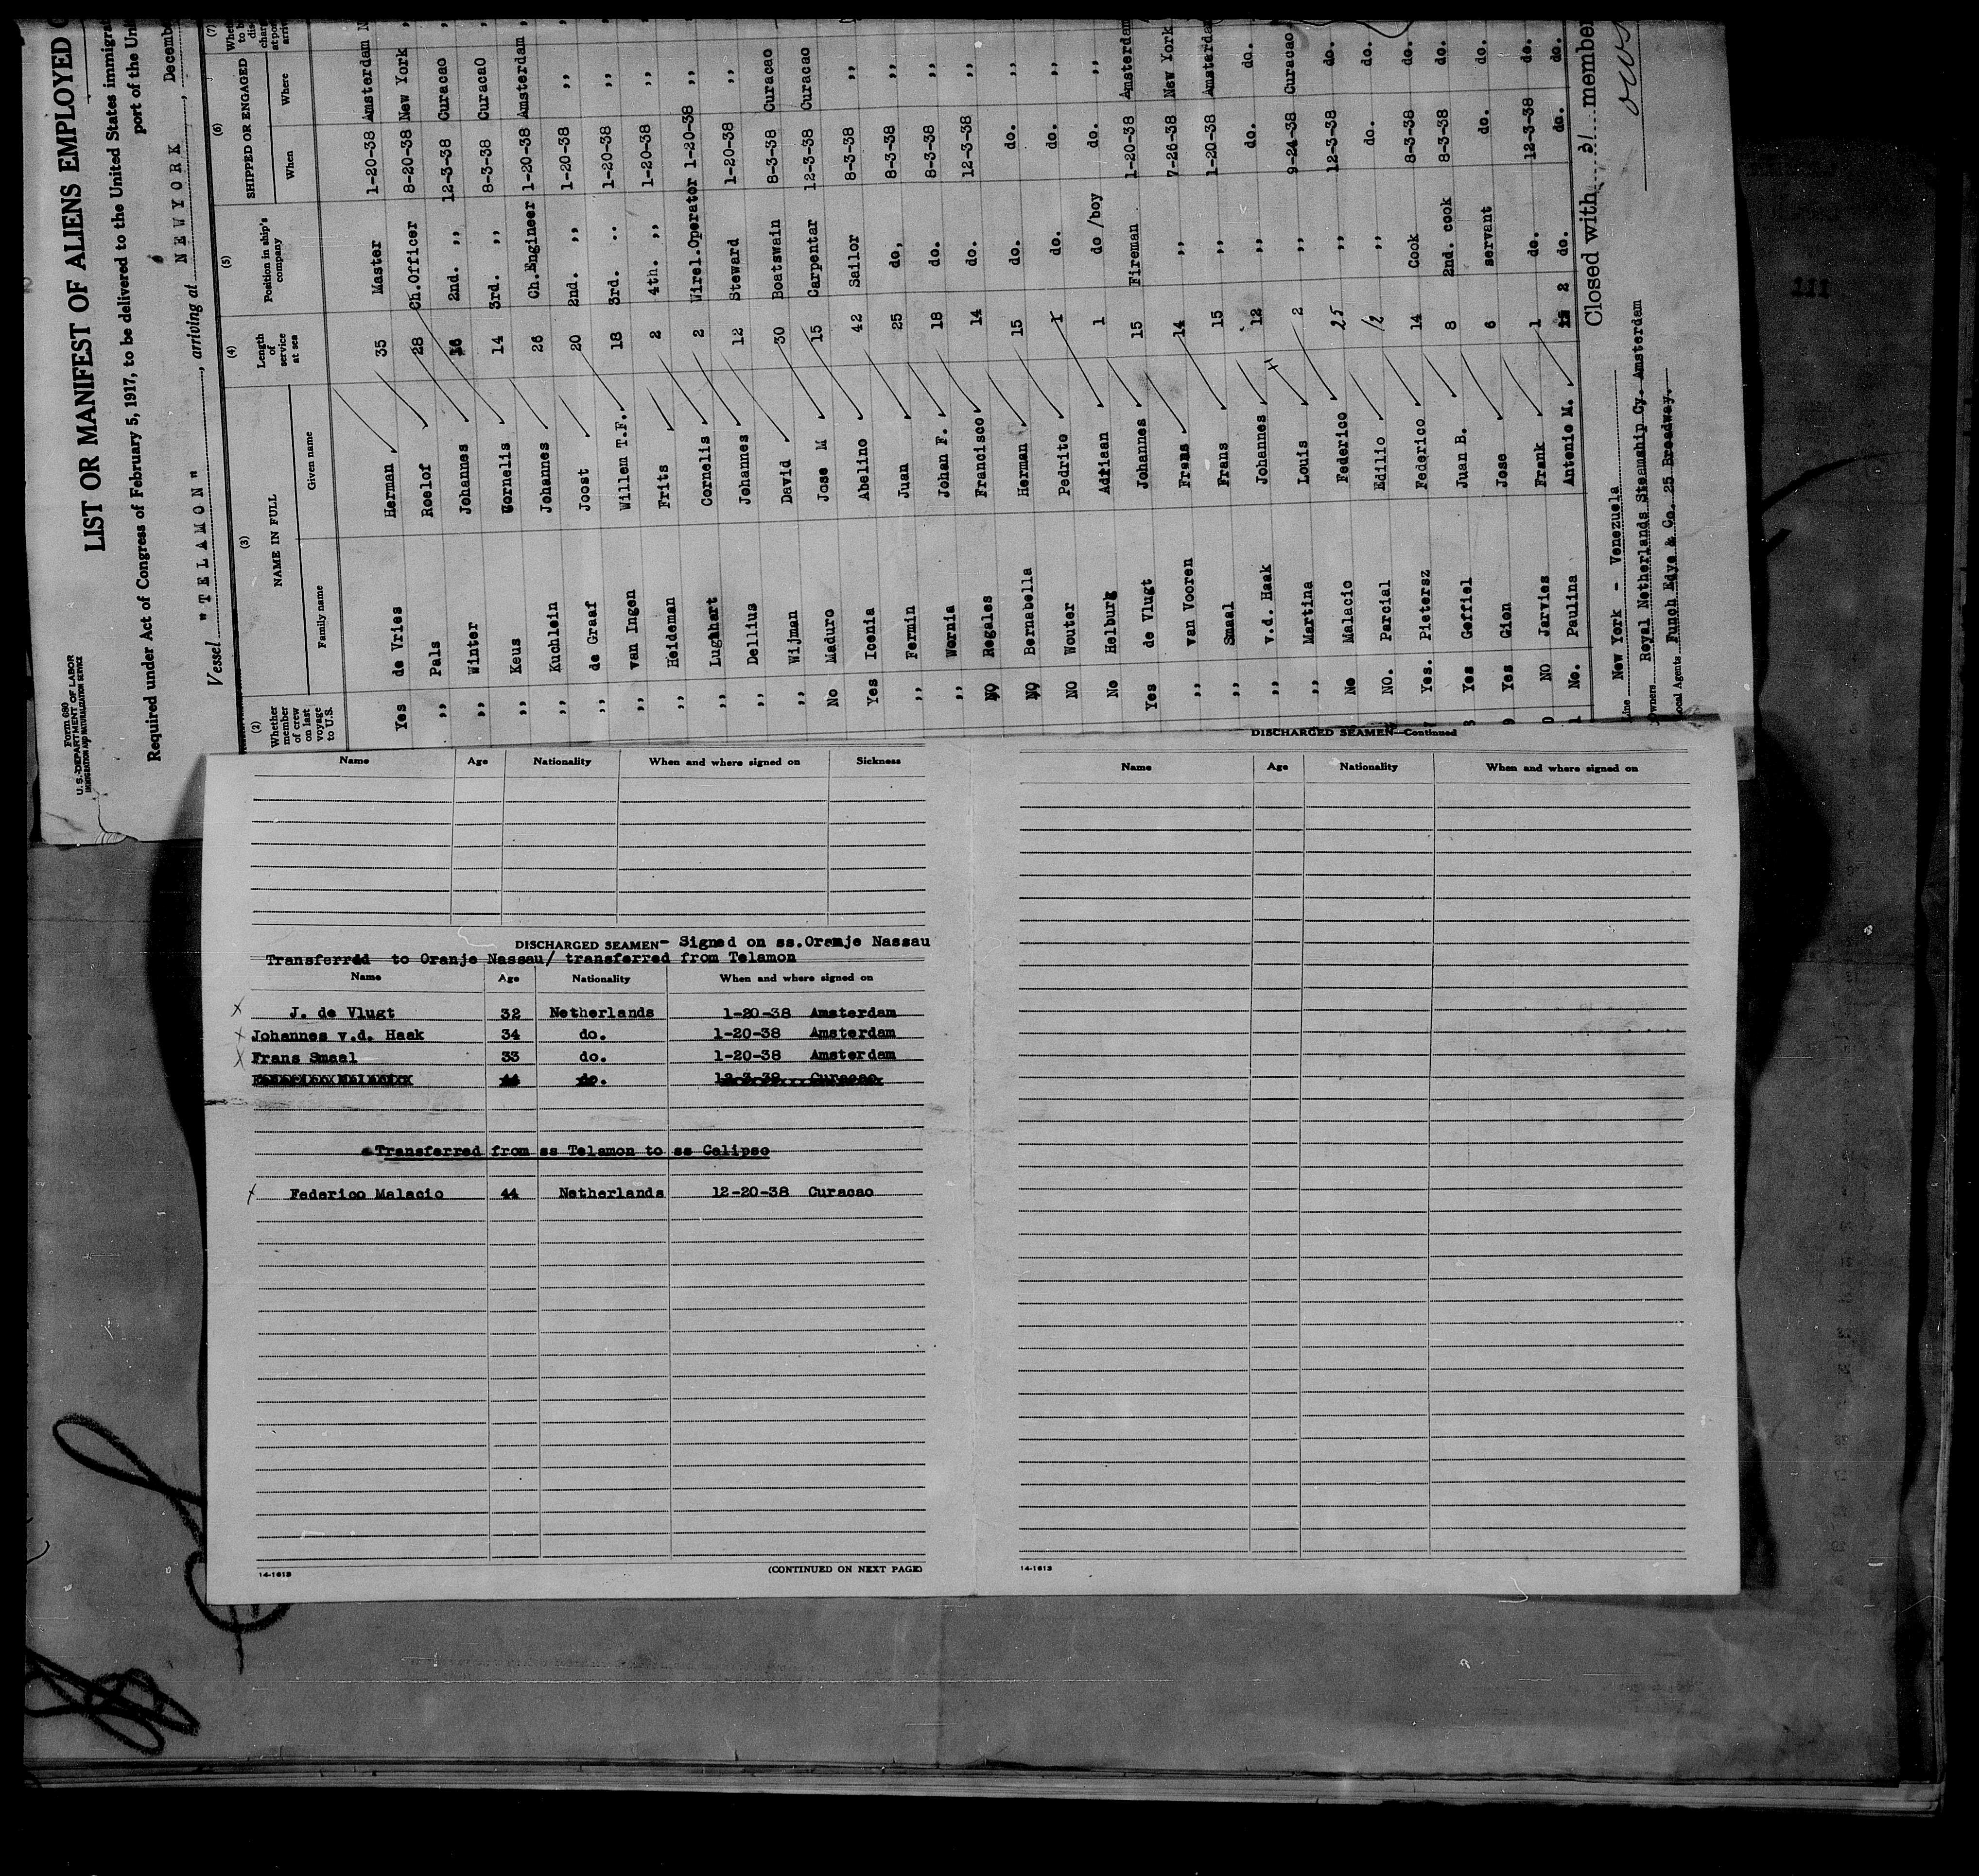 Form 680
U. S. DEPARTMENT OF LABOR
IMMIGRATION AND NATURALIZATION SERVICE
LIST OR MANIFEST OF ALIENS EMPLOYED
Required under Act of Congress of February 5, 1917, to be delivered to the United States immigrat
port of the Uni
Vessel "TELAMON", arriving at NEWYORK, Decemb
(2) (3) (4) (5) (6) (7)
Whether member of crew on last voyage to U.S. NAME IN FULL Length of service at sea Position in ship's company SHIPPED OR ENGAGED
Family name Given name When Where
Yes de Vries Herman 35 Master 1-20-38 Amsterdam
,, Pals Roelof 28 Ch.Officer 8-20-38 New York
,, Winter Johannes 16 2nd. ,, 12-3-38 Curacao
,, Keus Cornelis 14 3rd. ,, 8-3-38 Curacao
,, Kuchlein Johannes 26 Ch.Engineer 1-20-38 Amsterdam
,, de Graaf Joost 20 2nd. ,, 1-20-38 ,,
,, van Ingen Willem T.F. 18 3rd. .. 1-20-38 ,,
,, Heideman Frits 2 4th. ,, 1-20-38 ,,
,, Lughart Cornelis 2 Wirel.Operator 1-20-38 ,,
,, Dellius Johannes 12 Steward 1-20-38 ,,
,, Wijman David 30 Boatswain 8-3-38 Curacao
No Maduro Jose M 15 Carpentar 12-3-38 Curacao
Yes Icenia Abelino 42 Sailor 8-3-38 ,,
,, Fermin Juan 25 do, 8-3-38 ,,
,, Wernia Johan F. 18 do. 8-3-38 ,,
NO Regales Francisco 14 do. 12-3-38 ,,
NO Bernabella Herman 15 do. do. ,,
NO Wouter Pedrito 1 do. do. ,,
No Helburg Adrian 1 do /boy do. ,,
Yes de Vlugt Johannes 15 Fireman 1-20-38 Amsterdam
,, van Vooren Frans 14 ,, 7-26-38 New York
,, Smaal Frans 15 ,, 1-20-38 Amsterda
,, v.d. Haak Johannes 12 ,, do. do.
,, Martina Louis 2 ,, 9-24-38 Curacao
No Malacio Federico 25 ,, 12-3-38 do.
NO. Parcial Edilio 12 ,, do. do.
Yes. Pietersz Federico 14 Cook 8-3-38 do.
Yes Geffiel Juan B. 8 2nd. cook 8-3-38 do.
Yes Gien Jose 6 servant do. do.
NO Jarvies Frank 1 do. 12-3-38 do.
No. Paulina Antonio M. 2 do. do. do.
Closed with 31 member
Line New York - Venezuela
Owners Royal Netherlands Steamship Cy. Amsterdam
Local Agents Funch Edye & Co. 25 Broadway.
Name Age Nationality When and where signed on Sickness
DISCHARGED SEAMEN- Signed on ss.Oranje Nassau
Transferred to Oranje Nassau/ transferred from Telamon
Name Age Nationality When and where signed on
J. de Vlugt 32 Netherlands 1-20-38 Amsterdam
Johannes v.d. Haak 34 do. 1-20-38 Amsterdam
Frans Smaal 33 do. 1-20-38 Amsterdam
44 do. 12-3-38 Curacao
Transferred from ss Telamon to ss Calipso
Federico Malacio 44 Netherlands 12-20-38 Curacao
14-1613
(CONTINUED ON NEXT PAGE)
DISCHARGED SEAMEN—Continued
Name Age Nationality When and where signed on
14-1613